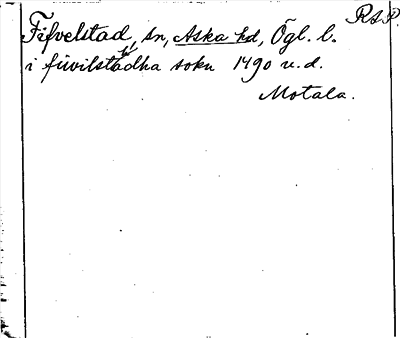 R.s.P.
Fifvelstad, sn, Aska hd, Ögl. l.
i fiwilstadha sokn 1490 u.d.
Motala.